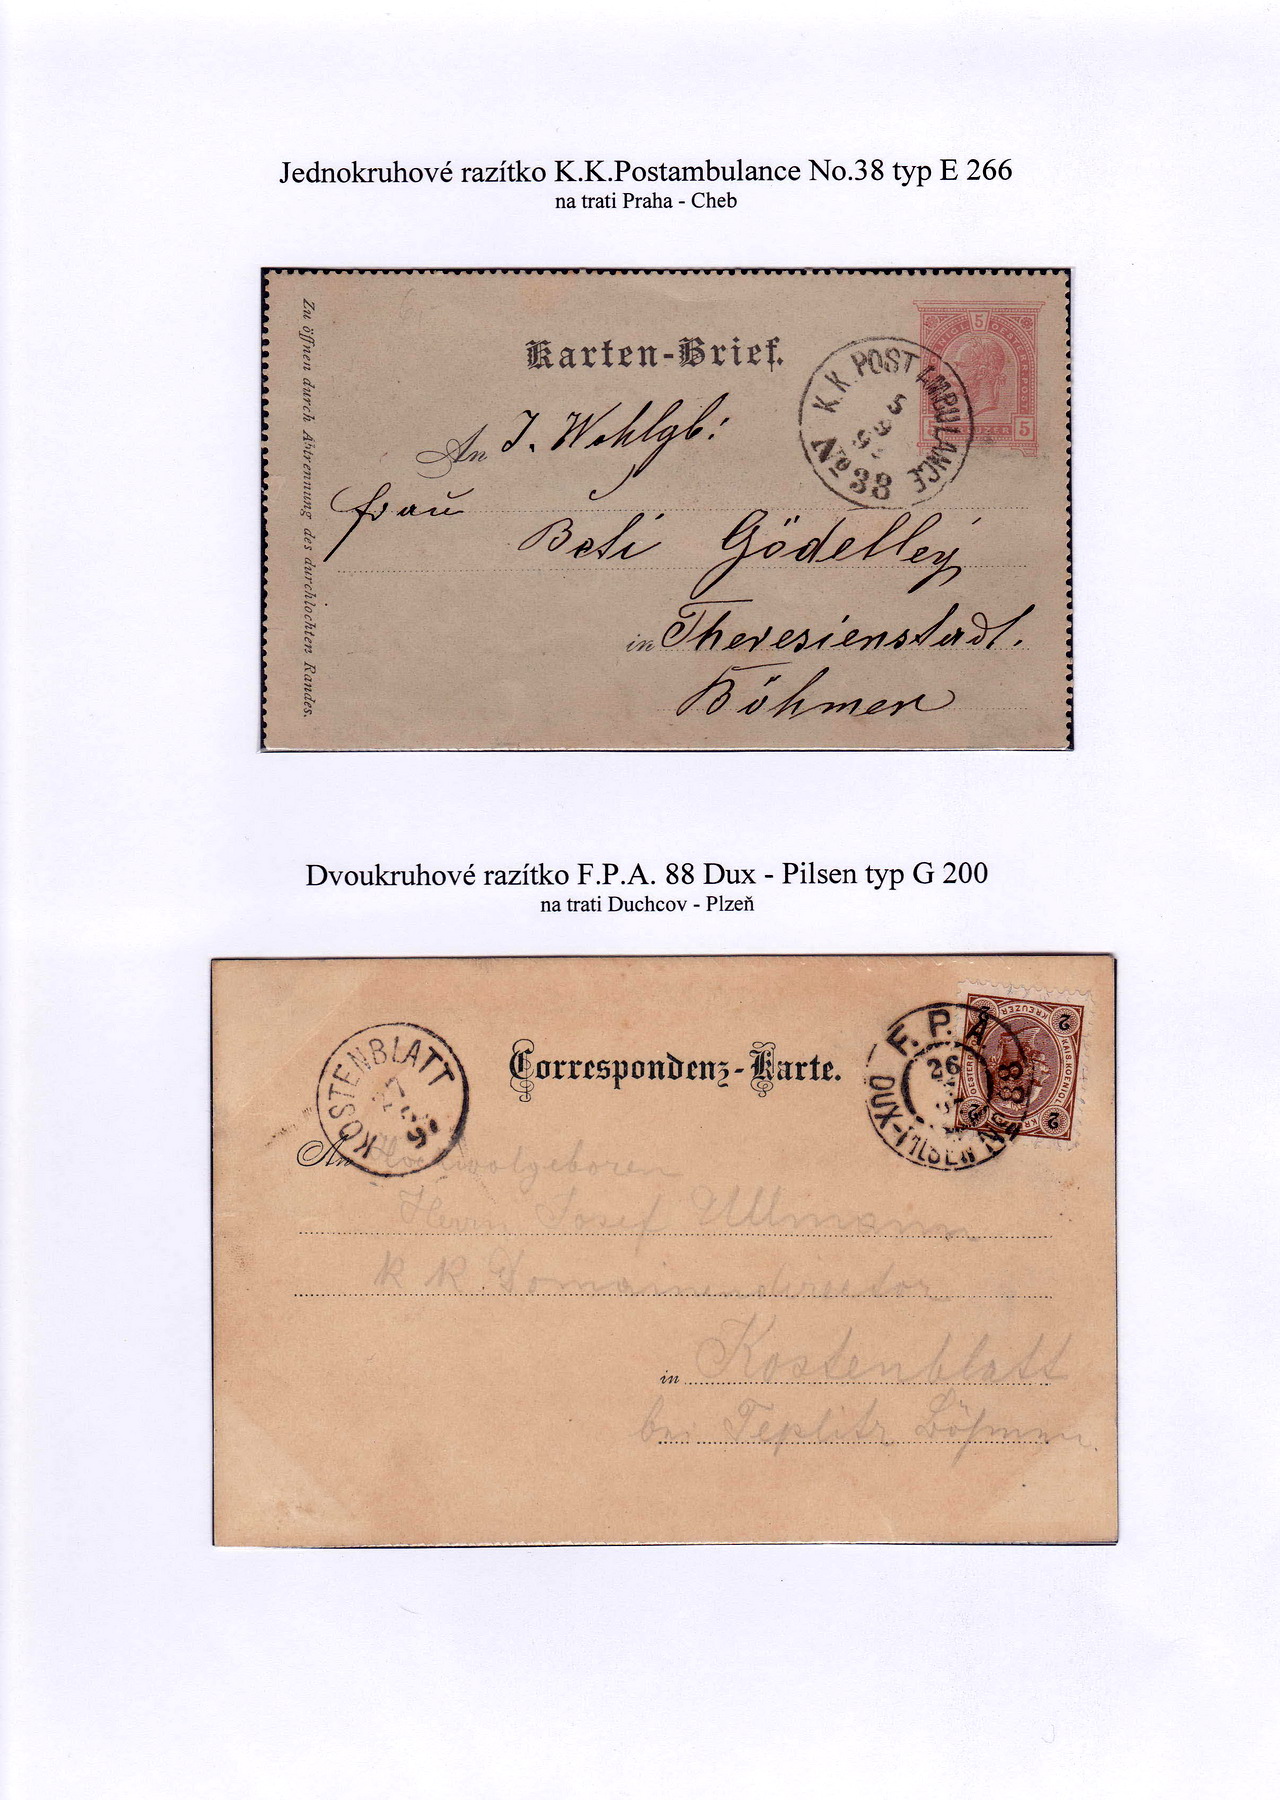 Jednokruhové razítko K.K.Postambulance No.38 typ E 266
na trati Praha - Cheb
Zu öffnen durch Abtrennung des durchlochten Randes.
Karten-Brief.
5
5
5
K.K. POSTAMBULANCE
5
No 38
An I. Wohlgb:
frau
Beti Gödelley
in Theresienstadt.
Böhmen
Dvoukruhové razítko F.P.A. 88 Dux - Pilsen typ G 200
na trati Duchcov - Plzeň
KOSTENBLATT
Correspondenz-Karte.
F.P.A. 88
26
DUX-PILSEN
2
2
2
KREUZER
KAIS.KOENIGL
An Hochwolgeboren
Herrn Josef Ullmann
k k Domainendirector
in Kostenblatt
bei Teplitz Böhmen.